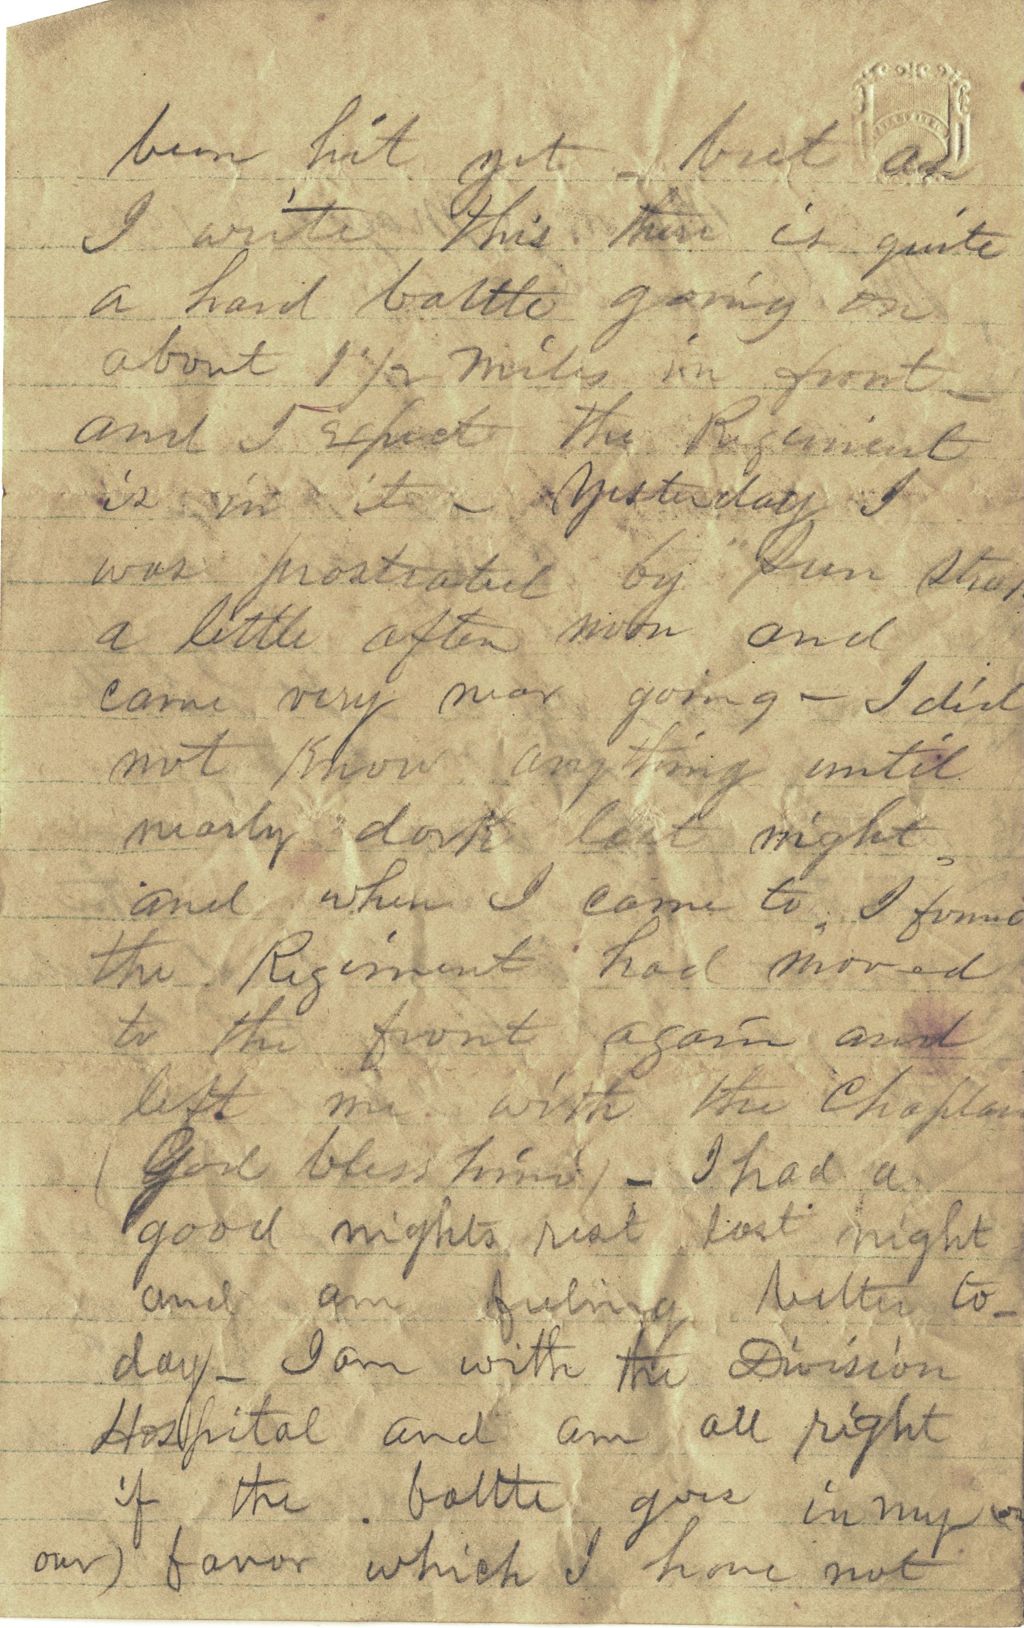 been hit yet – but as
I write this there is quite
a hard battle going on
about 1 1/2 miles in front –
and I Expect the Regiment
is in it – Yesterday I
was prostrated by Sun Strok
a little after noon and
came very near going – I did
not Know anything until
nearly dark last night,
and when I came to, I found
the Regiment had moved
to the front again and
left me with the Chaplain
(God bless him) – I had a
good nights rest last night
and am feeling better to-
day – I am with the Division
Hospital and am all right
if the battle goes in my (or
our) favor which I have not